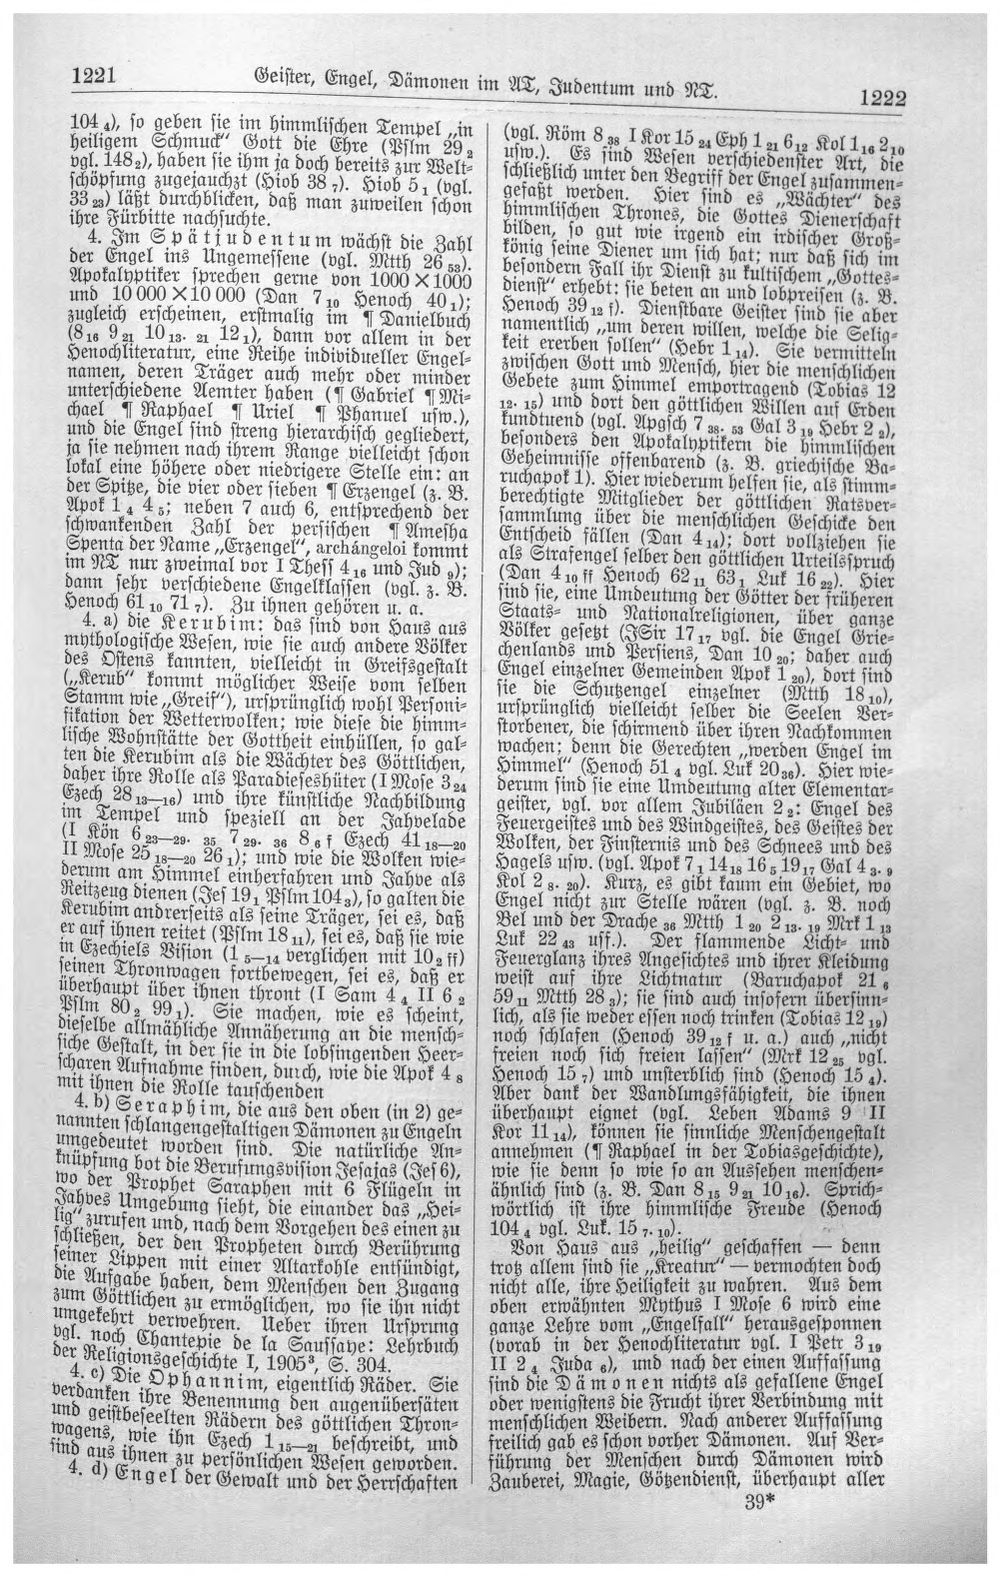 1221
Geister, Engel, Dämonen im AT, Judentum und NT.
1222
104 4), so geben sie im himmlischen Tempel „in
heiligem Schmuck“ Gott die Ehre (Pslm 29 2
vgl. 148 2), haben sie ihm ja doch bereits zur Welt-
schöpfung zugejauchzt (Hiob 38 7). Hiob 5 1 (vgl.
33 23) läßt durchblicken, daß man zuweilen schon
ihre Fürbitte nachsuchte.
4. Im Spätjudentum wächst die Zahl
der Engel ins Ungemessene (vgl. Mtth 26 53).
Apokalyptiker sprechen gerne von 1000 × 1000
und 10 000 × 10 000 (Dan 7 10 Henoch 40 1);
zugleich erscheinen, erstmalig im ¶ Danielbuch
(8 16 9 21 10 13. 21 12 1), dann vor allem in der
Henochliteratur, eine Reihe individueller Engel-
namen, deren Träger auch mehr oder minder
unterschiedene Aemter haben (¶ Gabriel ¶ Mi-
chael ¶ Raphael ¶ Uriel ¶ Phanuel usw.),
und die Engel sind streng hierarchisch gegliedert,
ja sie nehmen nach ihrem Range vielleicht schon
lokal eine höhere oder niedrigere Stelle ein: an
der Spitze, die vier oder sieben ¶ Erzengel (z. B.
Apok 1 4 4 5; neben 7 auch 6, entsprechend der
schwankenden Zahl der persischen ¶ Amesha
Spenta der Name „Erzengel“, archángeloi kommt
im NT nur zweimal vor I Thess 4 16 und Jud 9);
dann sehr verschiedene Engelklassen (vgl. z. B.
Henoch 61 10 71 7). Zu ihnen gehören u. a.
4. a) die Kerubim: das sind von Haus aus
mythologische Wesen, wie sie auch andere Völker
des Ostens kannten, vielleicht in Greifsgestalt
(„Kerub“ kommt möglicher Weise vom selben
Stamm wie „Greif“), ursprünglich wohl Personi-
fikation der Wetterwolken; wie diese die himm-
lische Wohnstätte der Gottheit einhüllen, so gal-
ten die Kerubim als die Wächter des Göttlichen,
daher ihre Rolle als Paradieseshüter (I Mose 3 24
Ezech 28 13—16) und ihre künstliche Nachbildung
im Tempel und speziell an der Jahvelade
(I Kön 6 23—29. 35 7 29. 36 8 6 f Ezech 41 18—20
II Mose 25 18—20 26 1); und wie die Wolken wie-
derum am Himmel einherfahren und Jahve als
Reitzeug dienen (Jes 19 1 Pslm 104 3), so galten die
Kerubim andrerseits als seine Träger, sei es, daß
er auf ihnen reitet (Pslm 18 11), sei es, daß sie wie
in Ezechiels Vision (1 5—14 verglichen mit 10 2 ff)
seinen Thronwagen fortbewegen, sei es, daß er
überhaupt über ihnen thront (I Sam 4 4 II 6 2
Pslm 80 2 99 1). Sie machen, wie es scheint,
dieselbe allmähliche Annäherung an die mensch-
liche Gestalt, in der sie in die lobsingenden Heer-
scharen Aufnahme finden, durch, wie die Apok 4 8
mit ihnen die Rolle tauschenden
4. b) Seraphim, die aus den oben (in 2) ge-
nannten schlangengestaltigen Dämonen zu Engeln
umgedeutet worden sind. Die natürliche An-
knüpfung bot die Berufungsvision Jesajas (Jes 6),
wo der Prophet Saraphen mit 6 Flügeln in
Jahves Umgebung sieht, die einander das „Hei-
lig“ zurufen und, nach dem Vorgehen des einen zu
schließen, der den Propheten durch Berührung
seiner Lippen mit einer Altarkohle entsündigt,
die Aufgabe haben, dem Menschen den Zugang
zum Göttlichen zu ermöglichen, wo sie ihn nicht
umgekehrt verwehren. Ueber ihren Ursprung
vgl. noch Chantepie de la Saussaye: Lehrbuch
der Religionsgeschichte I, 1905³, S. 304.
4. c) Die Ophannim, eigentlich Räder. Sie
verdanken ihre Benennung den augenübersäten
und geistbeseelten Rädern des göttlichen Thron-
wagens, wie ihn Ezech 1 15—21 beschreibt, und
sind aus ihnen zu persönlichen Wesen geworden.
4. d) Engel der Gewalt und der Herrschaften
(vgl. Röm 8 38 I Kor 15 24 Eph 1 21 6 12 Kol 1 16 2 10
usw.). Es sind Wesen verschiedenster Art, die
schließlich unter den Begriff der Engel zusammen-
gefaßt werden. Hier sind es „Wächter“ des
himmlischen Thrones, die Gottes Dienerschaft
bilden, so gut wie irgend ein irdischer Groß-
könig seine Diener um sich hat; nur daß sich im
besondern Fall ihr Dienst zu kultischem „Gottes-
dienst“ erhebt: sie beten an und lobpreisen (z. B.
Henoch 39 12 f). Dienstbare Geister sind sie aber
namentlich „um deren willen, welche die Selig-
keit ererben sollen“ (Hebr 1 14). Sie vermitteln
zwischen Gott und Mensch, hier die menschlichen
Gebete zum Himmel emportragend (Tobias 12
12. 15) und dort den göttlichen Willen auf Erden
kundtuend (vgl. Apgsch 7 38. 53 Gal 3 19 Hebr 2 2),
besonders den Apokalyptikern die himmlischen
Geheimnisse offenbarend (z. B. griechische Ba-
ruchapok 1). Hier wiederum helfen sie, als stimm-
berechtigte Mitglieder der göttlichen Ratsver-
sammlung über die menschlichen Geschicke den
Entscheid fällen (Dan 4 14); dort vollziehen sie
als Strafengel selber den göttlichen Urteilsspruch
(Dan 4 10 ff Henoch 62 11 63 1 Luk 16 22). Hier
sind sie, eine Umdeutung der Götter der früheren
Staats- und Nationalreligionen, über ganze
Völker gesetzt (JSir 17 17 vgl. die Engel Grie-
chenlands und Persiens, Dan 10 20; daher auch
Engel einzelner Gemeinden Apok 1 20), dort sind
sie die Schutzengel einzelner (Mtth 18 10),
ursprünglich vielleicht selber die Seelen Ver-
storbener, die schirmend über ihren Nachkommen
wachen; denn die Gerechten „werden Engel im
Himmel“ (Henoch 51 4 vgl. Luk 20 36). Hier wie-
derum sind sie eine Umdeutung alter Elementar-
geister, vgl. vor allem Jubiläen 2 2: Engel des
Feuergeistes und des Windgeistes, des Geistes der
Wolken, der Finsternis und des Schnees und des
Hagels usw. (vgl. Apok 7 1 14 18 16 5 19 17 Gal 4 3. 9
Kol 2 8. 20). Kurz, es gibt kaum ein Gebiet, wo
Engel nicht zur Stelle wären (vgl. z. B. noch
Bel und der Drache 36 Mtth 1 20 2 13. 19 Mrk 1 13
Luk 22 43 uff.). Der flammende Licht- und
Feuerglanz ihres Angesichtes und ihrer Kleidung
weist auf ihre Lichtnatur (Baruchapok 21 6
59 11 Mtth 28 3); sie sind auch insofern übersinn-
lich, als sie weder essen noch trinken (Tobias 12 19)
noch schlafen (Henoch 39 12 f u. a.) auch „nicht
freien noch sich freien lassen“ (Mrk 12 25 vgl.
Henoch 15 7) und unsterblich sind (Henoch 15 4).
Aber dank der Wandlungsfähigkeit, die ihnen
überhaupt eignet (vgl. Leben Adams 9 II
Kor 11 14), können sie sinnliche Menschengestalt
annehmen (¶ Raphael in der Tobiasgeschichte),
wie sie denn so wie so an Aussehen menschen-
ähnlich sind (z. B. Dan 8 15 9 21 10 16). Sprich-
wörtlich ist ihre himmlische Freude (Henoch
104 4 vgl. Luk. 15 7. 10).
Von Haus aus „heilig“ geschaffen — denn
trotz allem sind sie „Kreatur“ — vermochten doch
nicht alle, ihre Heiligkeit zu wahren. Aus dem
oben erwähnten Mythus I Mose 6 wird eine
ganze Lehre vom „Engelfall“ herausgesponnen
(vorab in der Henochliteratur vgl. I Petr 3 19
II 2 4 Juda 6), und nach der einen Auffassung
sind die Dämonen nichts als gefallene Engel
oder wenigstens die Frucht ihrer Verbindung mit
menschlichen Weibern. Nach anderer Auffassung
freilich gab es schon vorher Dämonen. Auf Ver-
führung der Menschen durch Dämonen wird
Zauberei, Magie, Götzendienst, überhaupt aller
39*